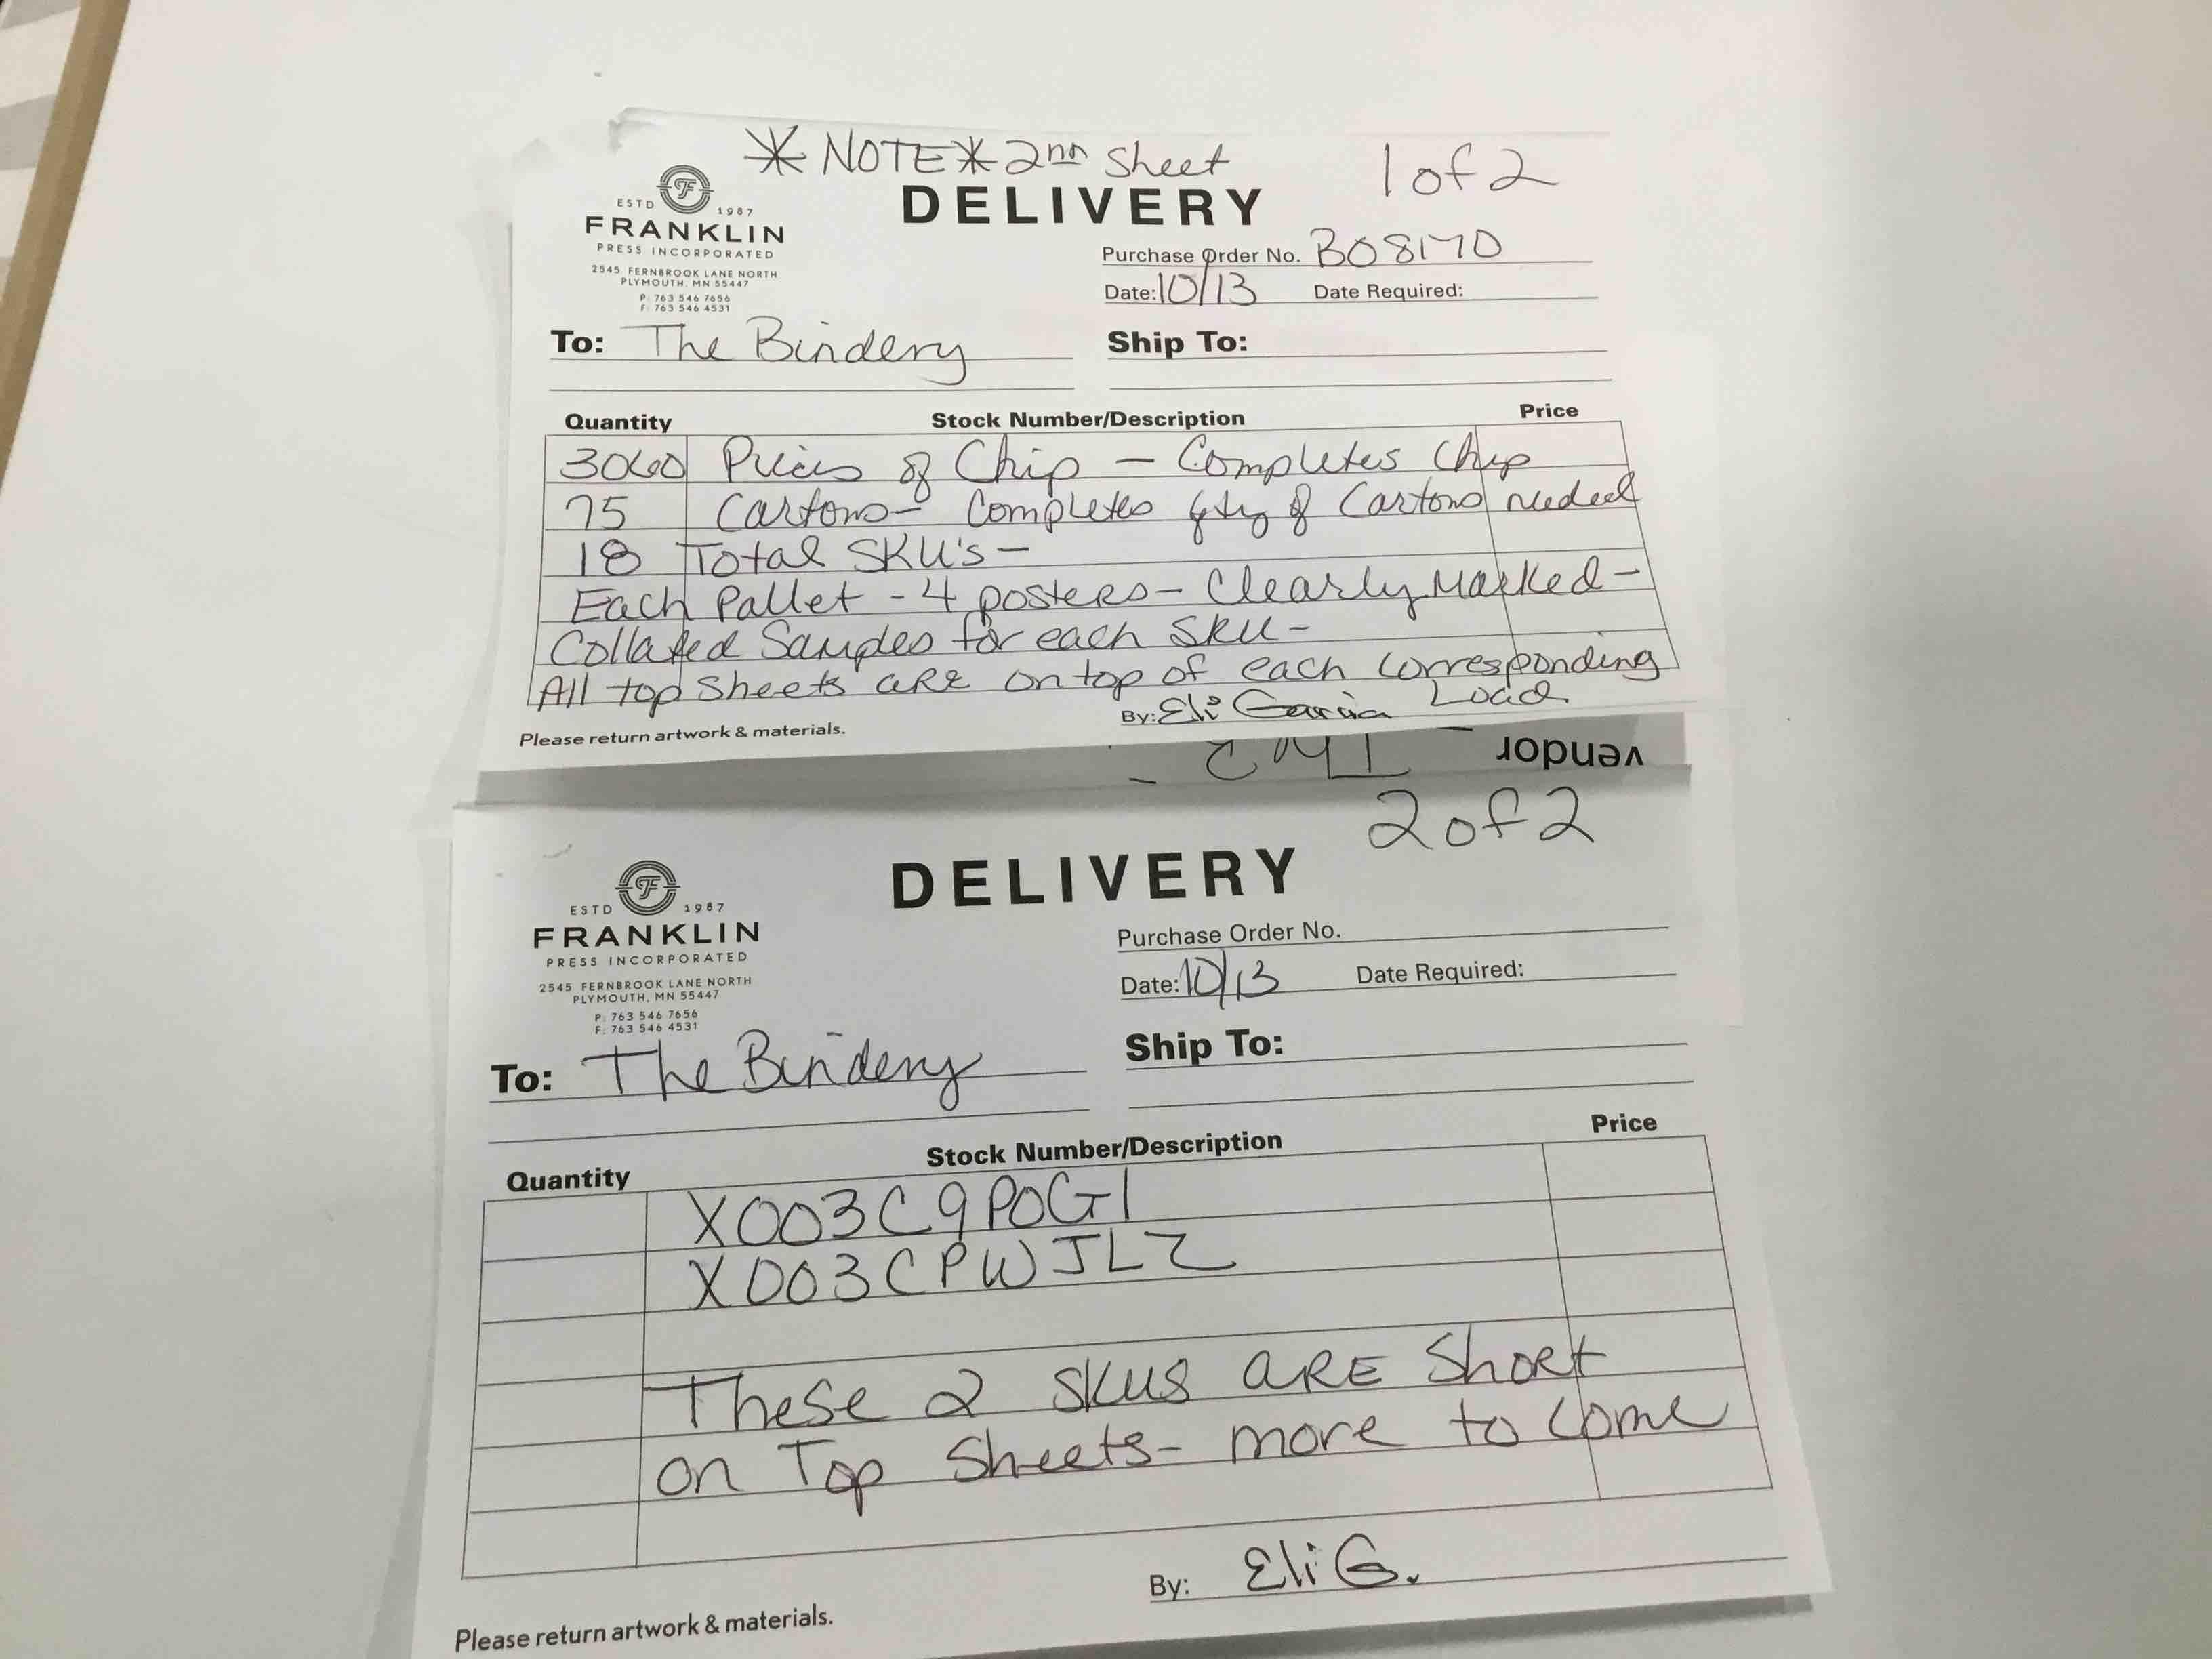 *NOTE* 2nd Sheet
1 of 2
ESTD 1987
FRANKLIN
PRESS INCORPORATED
2545 FERNBROOK LANE NORTH
PLYMOUTH, MN 55447
P: 763 546 7656
F: 763 546 4531
DELIVERY
Purchase Order No. B08170
Date: 10/13 Date Required:
To: The Bindery Ship To:
Quantity Stock Number/Description Price
3060 Pieces of Chip - Completes Chip
75 Cartons - Completes qty of Cartons needed
18 Total SKU's -
Each Pallet - 4 posters - Clearly Marked -
Collated Samples for each SKU -
All top sheets are on top of each corresponding
Load
By: Eli Garcia
Please return artwork & materials.
vendor
2 of 2
ESTD 1987
FRANKLIN
PRESS INCORPORATED
2545 FERNBROOK LANE NORTH
PLYMOUTH, MN 55447
P: 763 546 7656
F: 763 546 4531
DELIVERY
Purchase Order No.
Date: 10/13 Date Required:
To: The Bindery Ship To:
Quantity Stock Number/Description Price
X003C9POG1
X003CPWJLZ
These 2 SKUS ARE Short
on Top Sheets - more to come
By: Eli G.
Please return artwork & materials.